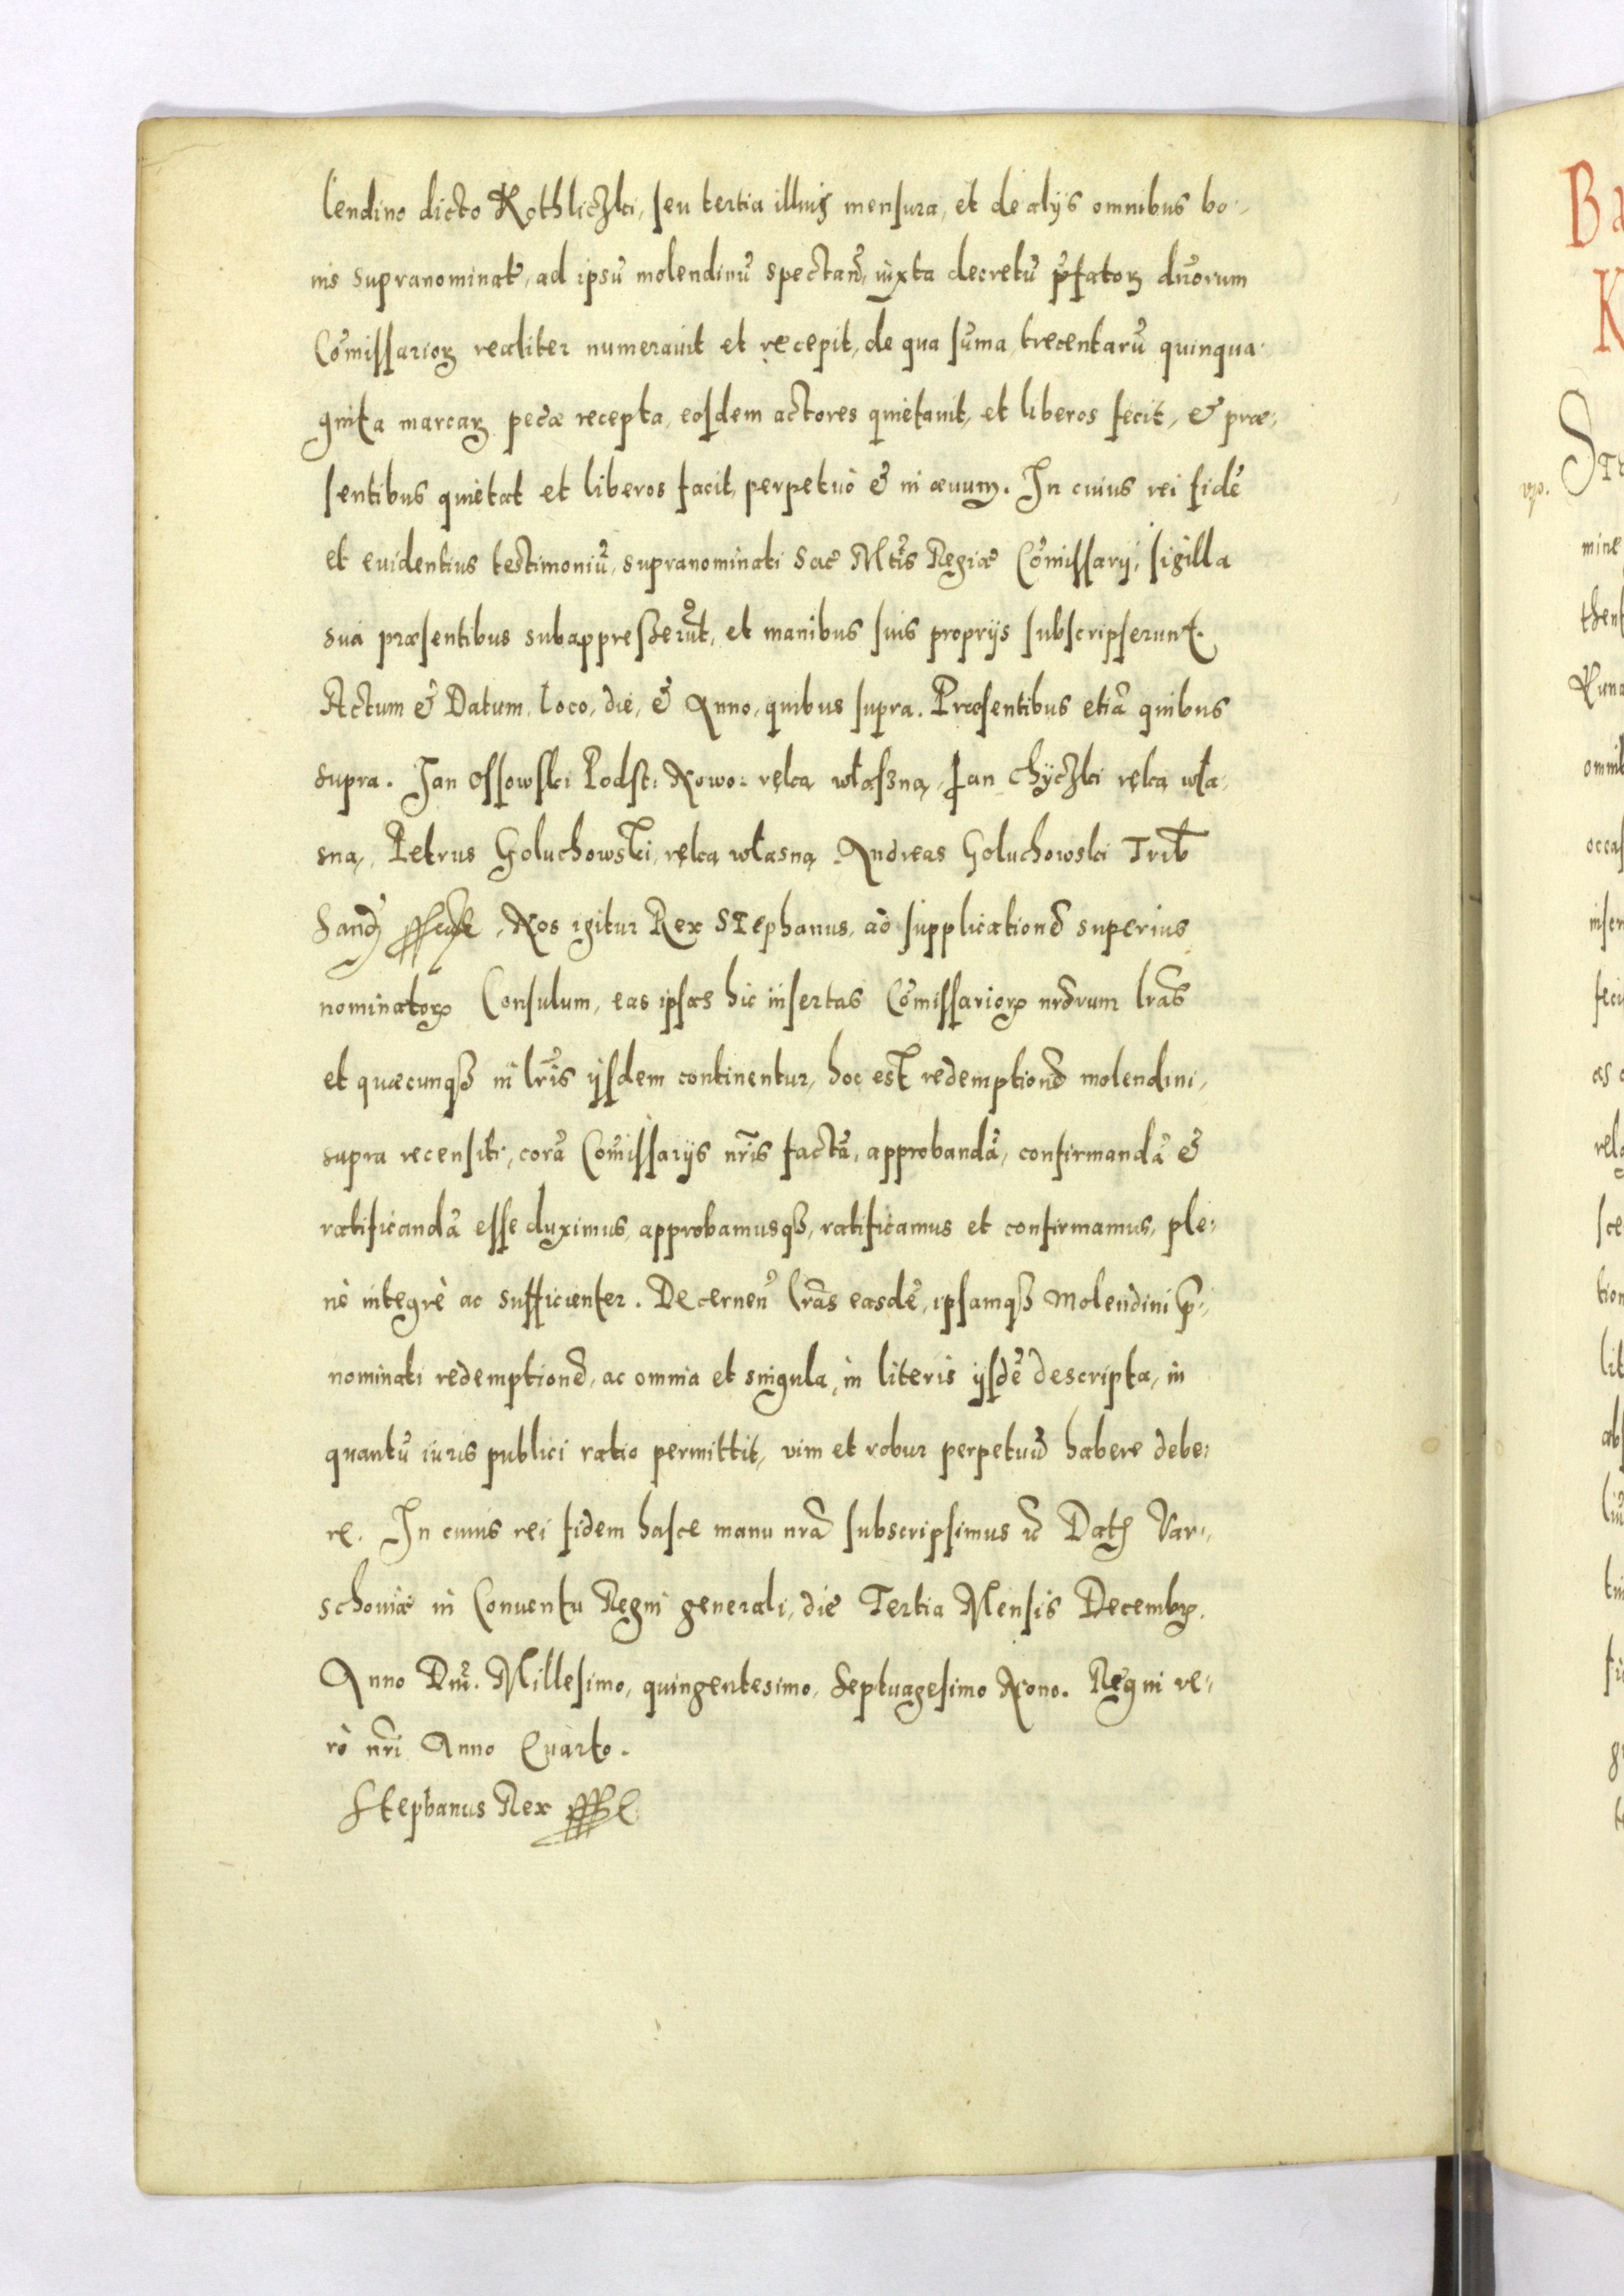 lendino dicto Kothliczki, seu tertia illius mensura, et de alijs omnibus bo-
nis supranominat̃, ad ipsũ molendinũ spectañ, iuxta decretũ p̃fatoꝝ duorum
Cõmissarioꝝ realiter numerauit et recepit, de qua sũma trecentarũ quinqua-
ginta marcaꝝ pecæ recepta, eosdem actores quietauit, et liberos fecit, & præ-
sentibus quietat et liberos facit, perpetuò & in æuum. In cuius rei fidẽ
et euidentius testimoniũ, supranominati Sac̃ Mt̃is Regiæ Cõmissarij, sigilla
sua præsentibus subappresserũt, et manibus suis proprijs subscripserunt.
Actum & Datum, loco, die, & Anno, quibus supra. Præsentibus etiã quibus
supra. Jan Ossowski Podst: Nowo: ręką właszną, Jan Chyczki ręką wła-
sną, Petrus Goluchowski, ręką własną Andreas Goluchowski Trib
Sand̃ Nos igitur Rex Stephanus, ad supplicationẽ superius
nominatoꝝ Consulum, eas ipsas hic insertas Cõmissarioꝝ nr̃orum lr̃as
et quæcunqꝫ in lr̃is ijsdem continentur, hoc est redemptionẽ molendini,
supra recensiti, corã Cõmissarijs nr̃is factã, approbandã, confirmandã &
ratificandã esse duximus, approbamusqꝫ, ratificamus et confirmamus, ple-
nè integrè ac sufficienter. Decerneñ lr̃as easdẽ, ipsamqꝫ Molendini p̃-
nominati redemptionẽ, ac omnia et singula, in literis ijsdẽ descripta, in
quantũ iuris publici ratio permittit, vim et robur perpetuũ habere debe-
re. In cuius rei fidem hasce manu nr̃a subscripsimus Dat̃ Var-
schouiæ in Conuentu Regni generali, die Tertia Mensis Decembꝝ.
Anno Dñi. Millesimo, quingentesimo, Septuagesimo Nono. Regni ve-
rò nr̃i Anno Quarto.
Stephanus Rex